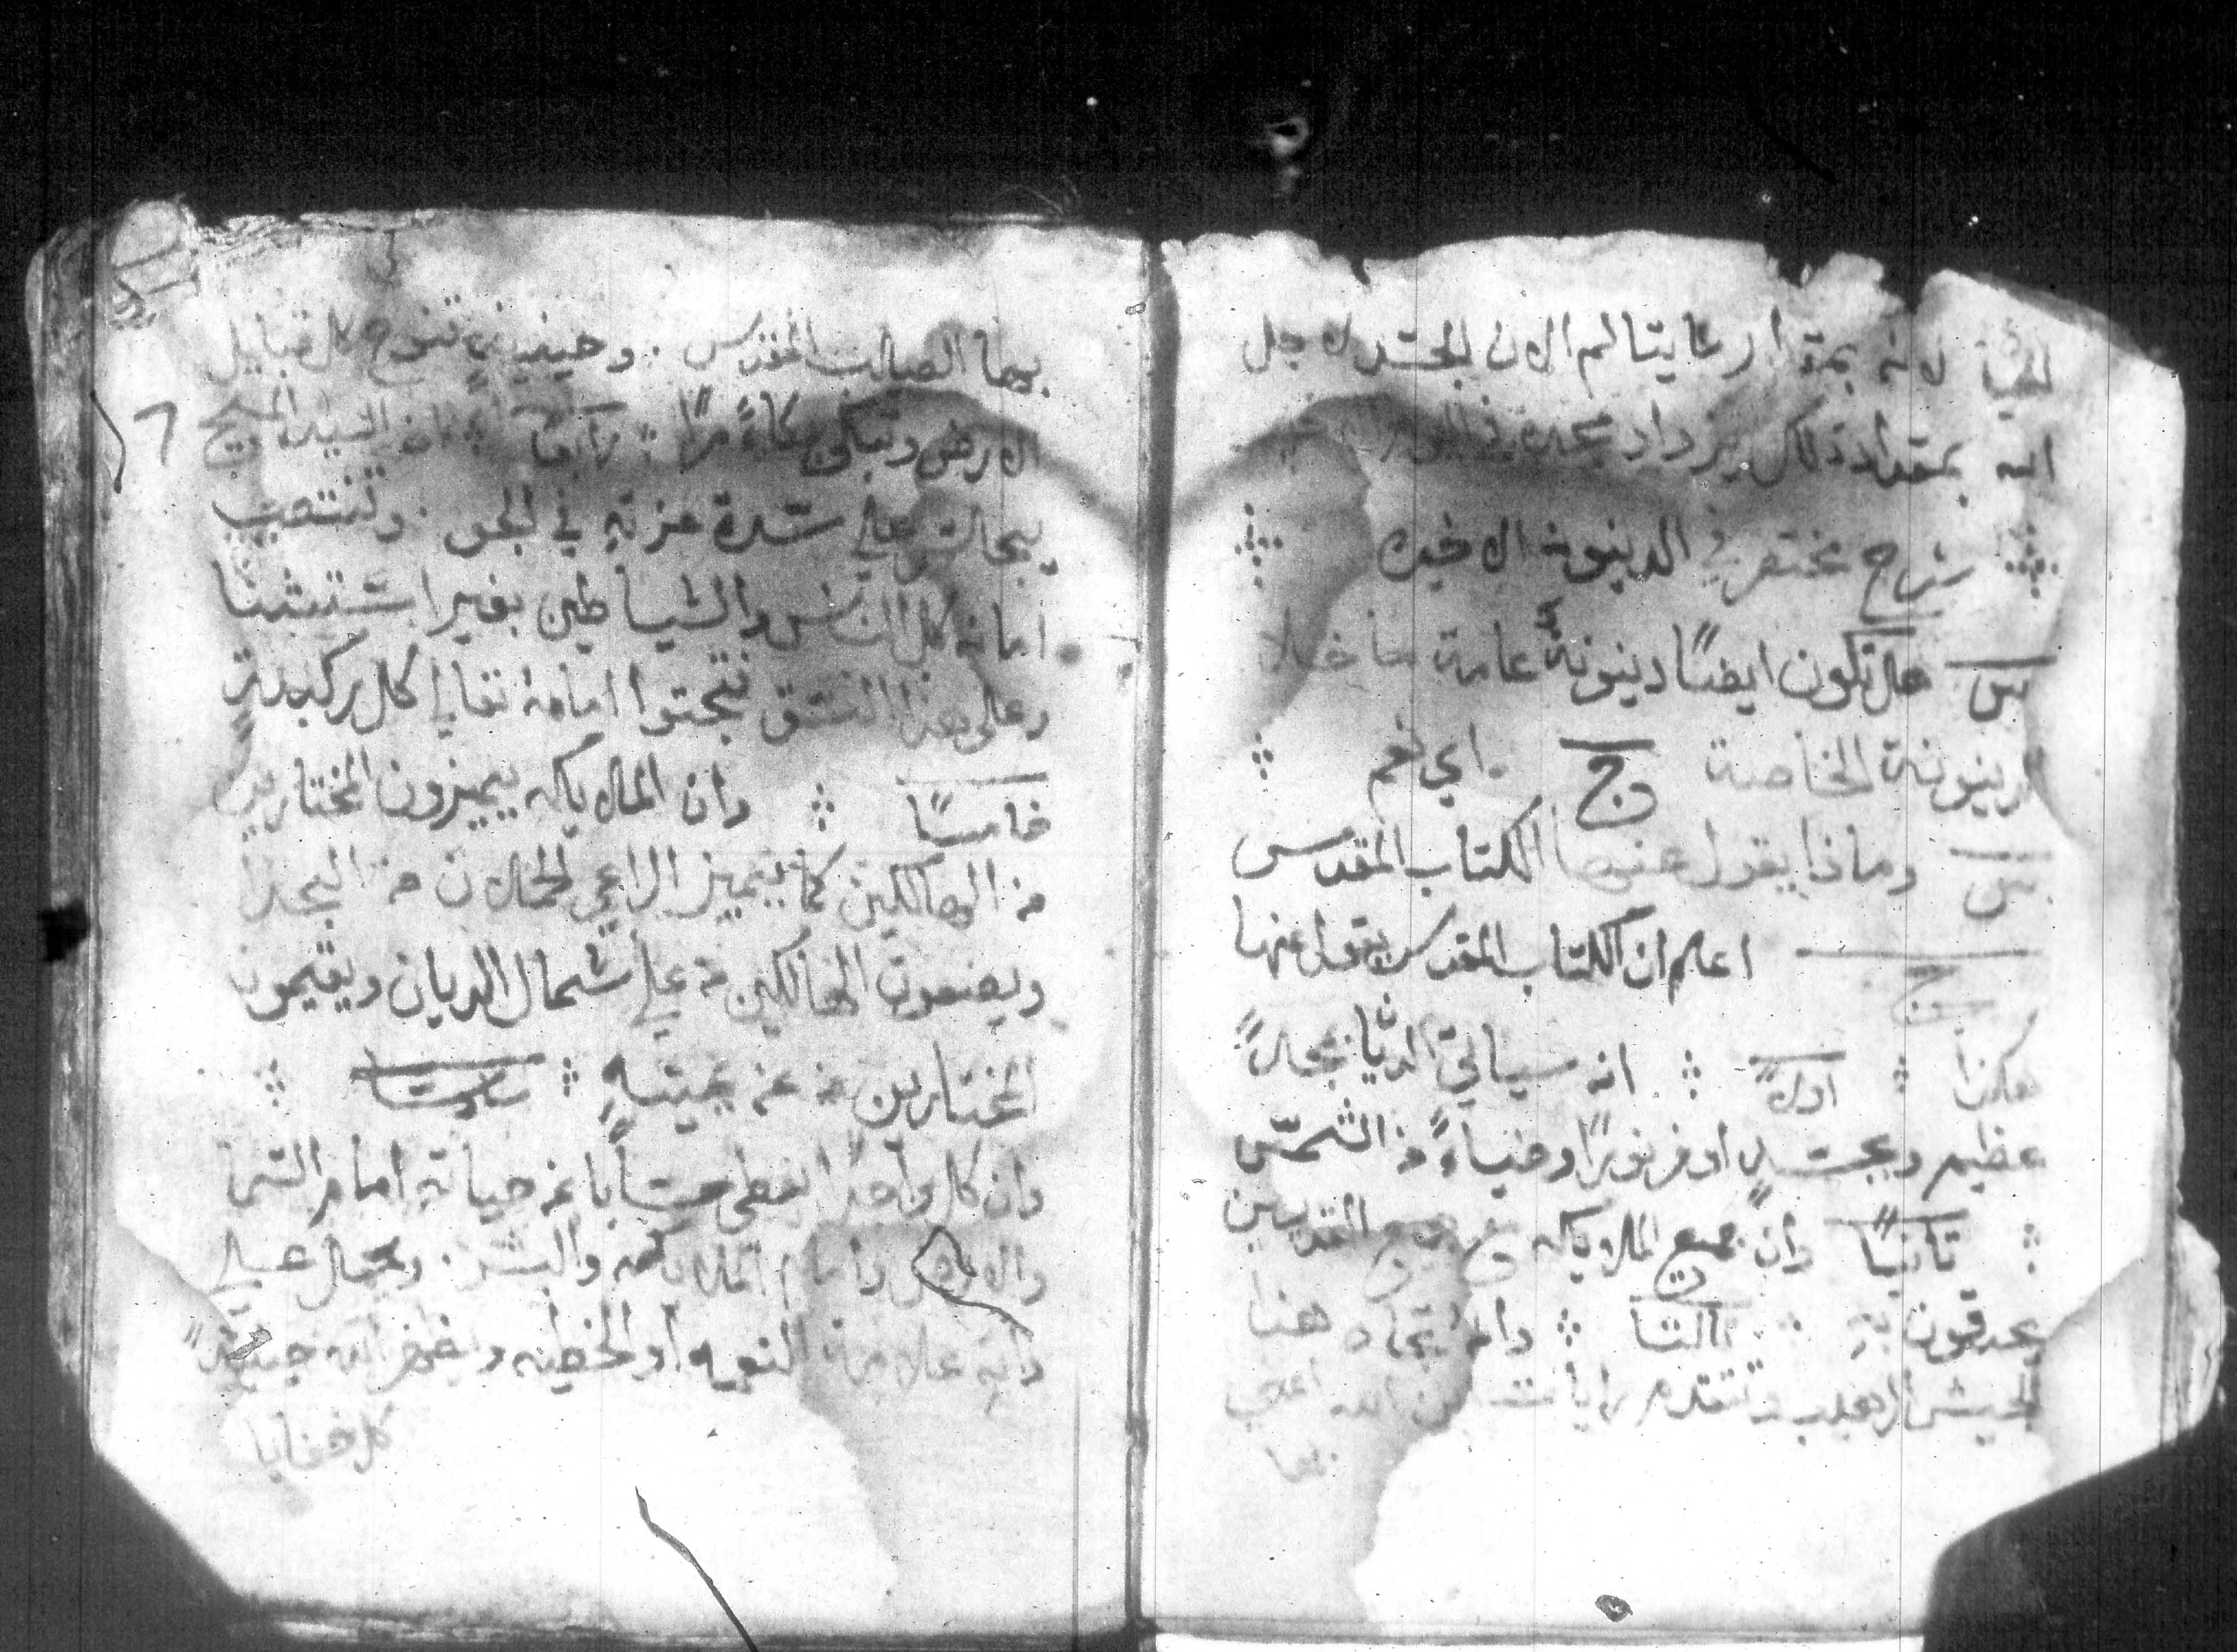 ايضًا لانه بمقدار ما يتالم الان الجسد لاجل
الله بمقدار ذلك يزداد مجده في
شرح مختصر في الدينونة الاخيره
س هل تكون ايضًا دينونة عامة ما خلا
الدينونة الخاصة ج اي نعم
س وماذا يقول عنها الكتاب المقدس
ج اعلم ان الكتاب المقدس يقول عنها
هكذا اولاً انه سياتي الديّان بمجدٍ
عظيم وبجسدٍ اوفر نورًا وضياءً من الشمس
ثانيًا وان جميع الملايكه مع جميع القديسين
يحدقون به ثالثا وامام هذا
الجيش الرهيب تتقدم راية ابن الله اعني
بها
بها الصليب المقدس وحينيذٍ تنوح كل قبايل
الارض وتبكي بكاءً مرًا رابعًا ان السيد المسيح
يجلس على سدة عزته في الجو وتنتصب
امامه كل الناس والشياطين بغير استثنا
وعلى هذا النسق تجثوا امامه تعالي كل ركبة
خامسًا وان الملايكه يميزون المختارين
من الهالكين كما يميز الراعي الحملان من الجدا
ويضعون الهالكين من على شمال الديان ويقيمون
المختارين من عن يمينهِ سادسًا
وان كل واحدًا يعطي حسابًا عن حياته امام السما
والارض وامام الملايكه والبشر
علامة التوبه او الخطيه ويظهر الله حينيذٍ
كل خفايا